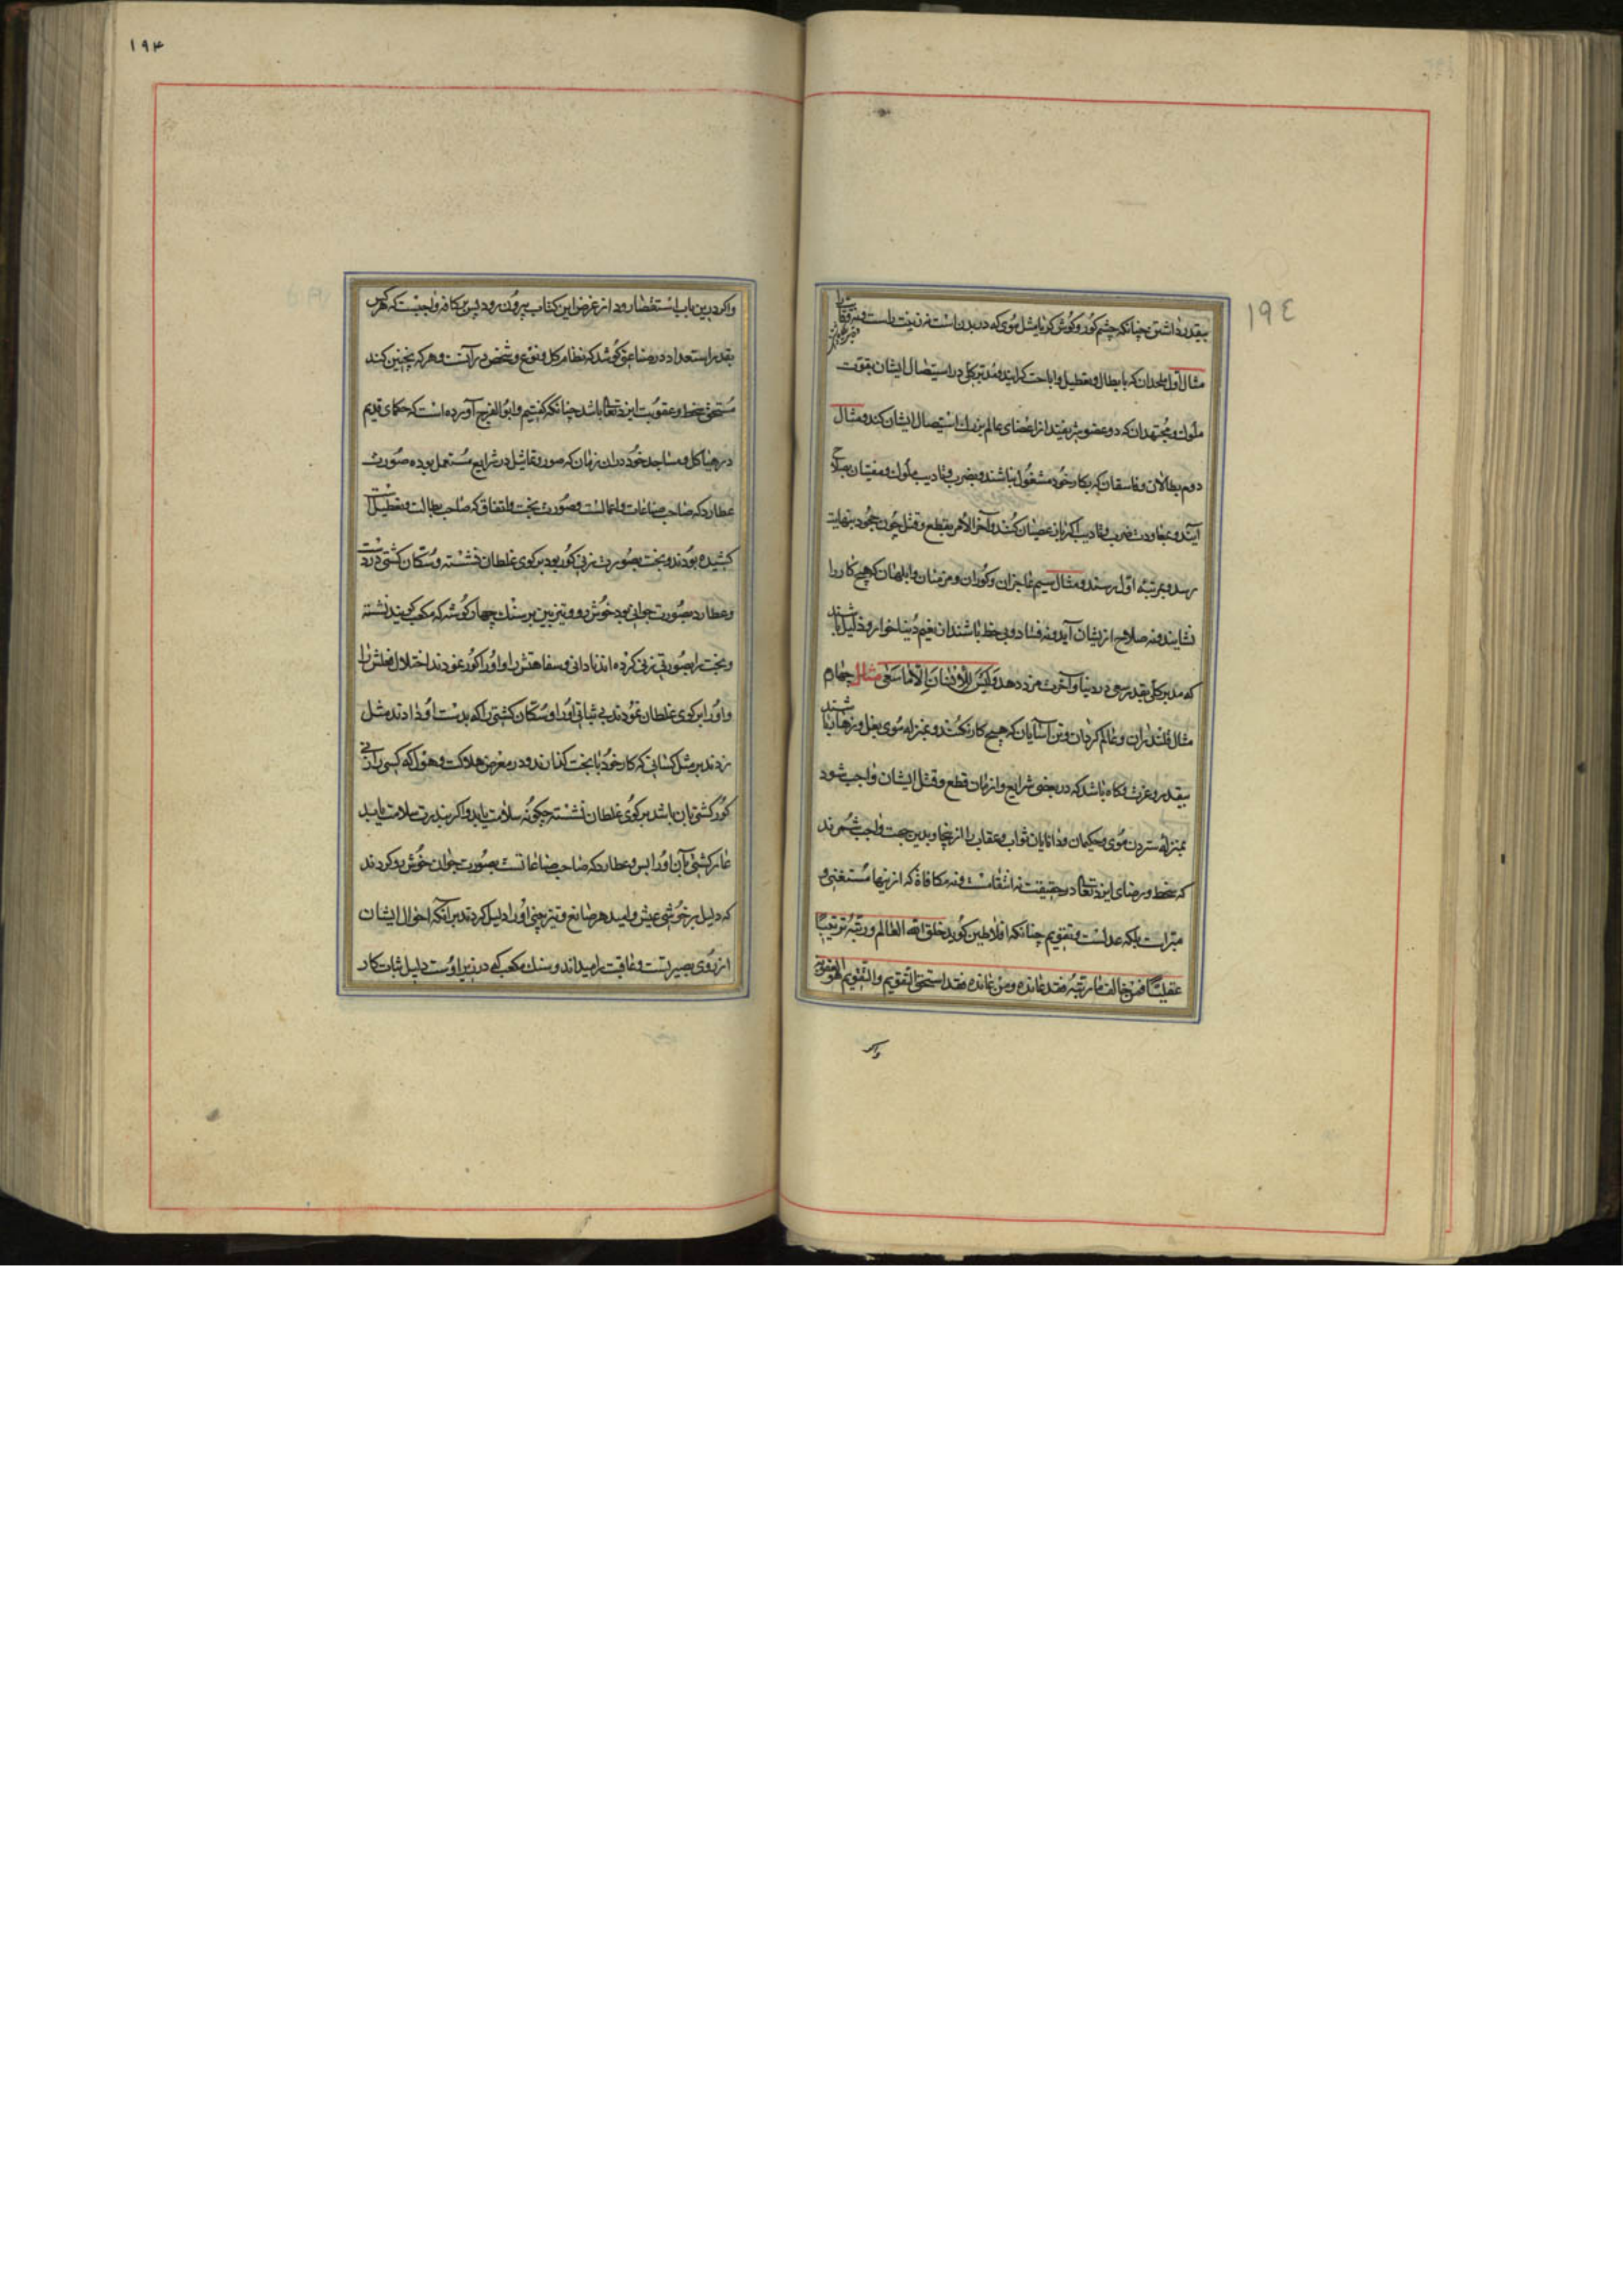 ١٩٤
بیقدر داشتن چنانکه چشم کور و کوش کر یا مثل موی که در بدن است نه زینت راست و نه وقایت را
مثال اول ملحدان که بابطال و تعطیل و اباحت کرایند و مدبر کلی در استیصال ایشان بقوت
ملوک و مجتهدان که دو عضو شریفند از اعضای عالم بزرک استیصال ایشان کند و مثال
دوم بطالان و فاسقان که بکار خود مشغول نباشند و بضرب و تادیب ملوک و مفتیان بصلاح
آیند و بمعاودت ضرب و تادیب اکر باز عصیان کنند و آخر الامر بقطع و قتل چون جحود بنهایت
رسد و بمرتبه اول رسند و مثال سیم عاجزان و کوران و مزمنان و ابلهان که هیچ کار را
نشایند و نه صلاح ازیشان آید و نه فساد و بی حظ باشند از نعیم دنیا خوار و ذلیل باشند
که مدبر کلی بقدر سعی در دنیا و آخرت مزد دهد وَلَیْسَ لِلْاِنْسَانِ اِلَّا مَا سَعٰی مثال چهارم
مثال قلندران و عالم کردان و تن آسایان که هیچ کار نکنند و بمنزله موی بغل و زهار باشند
بیقدر و عزت و کاه باشد که در بعضی شرایع و ازمان قطع و قتل ایشان واجب شود
بمنزله ستردن موی و حکیمان و دانایان ثواب و عقاب را ازینجا و بدین جهت واجب شمرند
که سخط و رضای ایزد تعالی در حقیقت نه انتقامست و نه مکافاة که ازینها مستغنی و
مبراست بلکه عدلست و تقویم چنانکه افلاطین کوید خلق الله العالم و رتبه ترتیبا
عقلیا فمن خالف ما رتبه فقد عانده و من عانده فقد استحق التقویم و التقویم هو
واکر
١٩٣
واکر درین باب استقصا رود از غرض این کتاب بیرون رود پس بر کافه واجبست که هر کس
بقدر استعداد در صناعتی کوشد که نظام کل و نوع و شخص در آنست و هر که نه چنین کند
مستحق سخط و عقوبت ایزد تعالی باشد چنانکه کفتیم و ابو الفرج آورده است که حکمای قدیم
در هیاکل و مساجد خود در آن زمان که صور و تماثیل در شرایع مستعمل بوده صورت
عطارد که صاحب صناعات و اعمالست و صورت بخت و اتفاق که صاحب بطالت و تعطیل است
کشیده بودند و بخت بصورت زنی کور بود بر کوی غلطان نشسته و سکان کشتی در دست
و عطارد بصورت جوانی بود خوش رو و تیزبین بر سنک چهار کوشه که مکعب کویند نشسته
و بخت را بصورتی زنی کرده اند نادانی و سفاهتش را و او را کور نمودند اختلال فعلش را
و او را بر کوی غلطان نمودند بی ثباتی او را و سکان کشتی را که بدست او دادند مثل
زدند بر مثل کسانی که کار خود با بخت کذارند و در معرض هلاکت و هول که کسی را زنی
کور کشتی بان باشد بر کوی غلطان نشسته چکونه سلامت یابد و اکر بندرت سلامت یابد
عار کشتی بان او را بس و عطارد که صاحب صناعاتست بصورت جوان خوش رو کردند
که دلیل بر خوشی عیش و امید هر صانع و تیز چشمی او را دلیل کردند بر آنکه احوال ایشان
از روی بصیرتست و عاقبت را میداند و سنک مکعب که در زیر اوست دلیل ثبات کار